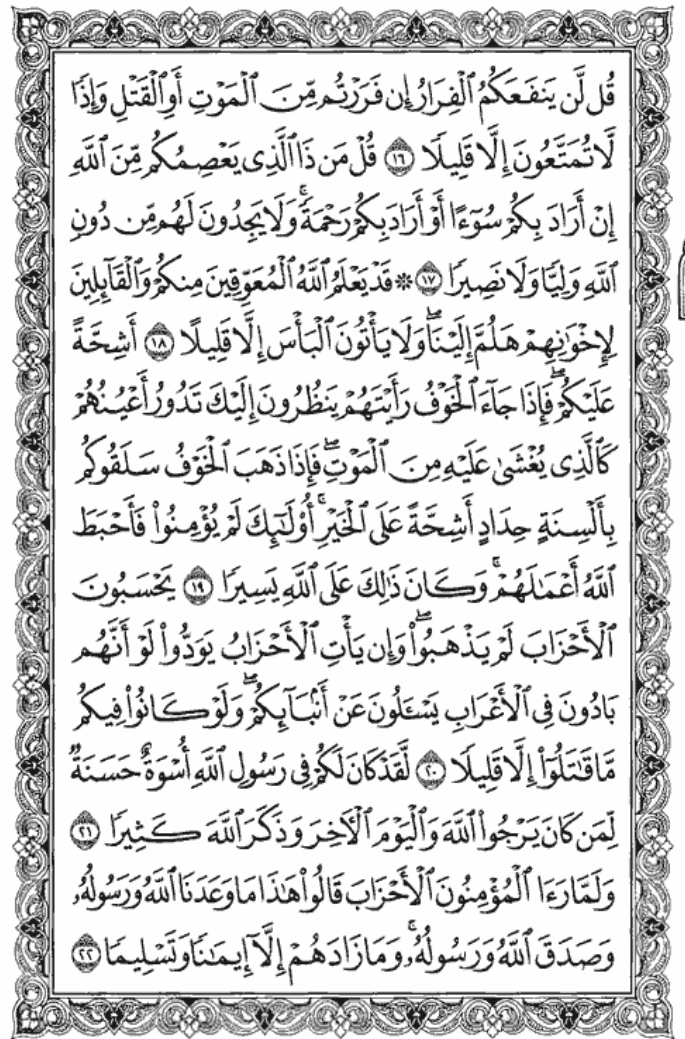 قُل لَّن يَنفَعَكُمُ ٱلْفِرَارُ إِن فَرَرْتُم مِّنَ ٱلْمَوْتِ أَوِ ٱلْقَتْلِ وَإِذًا
لَّا تُمَتَّعُونَ إِلَّا قَلِيلًا ١٦ قُلْ مَن ذَا ٱلَّذِى يَعْصِمُكُم مِّنَ ٱللَّهِ
إِنْ أَرَادَ بِكُمْ سُوٓءًا أَوْ أَرَادَ بِكُمْ رَحْمَةً ۚ وَلَا يَجِدُونَ لَهُم مِّن دُونِ
ٱللَّهِ وَلِيًّا وَلَا نَصِيرًا ١٧ ۞ قَدْ يَعْلَمُ ٱللَّهُ ٱلْمُعَوِّقِينَ مِنكُمْ وَٱلْقَآئِلِينَ
لِإِخْوَٰنِهِمْ هَلُمَّ إِلَيْنَا ۖ وَلَا يَأْتُونَ ٱلْبَأْسَ إِلَّا قَلِيلًا ١٨ أَشِحَّةً
عَلَيْكُمْ ۖ فَإِذَا جَآءَ ٱلْخَوْفُ رَأَيْتَهُمْ يَنظُرُونَ إِلَيْكَ تَدُورُ أَعْيُنُهُمْ
كَٱلَّذِى يُغْشَىٰ عَلَيْهِ مِنَ ٱلْمَوْتِ ۖ فَإِذَا ذَهَبَ ٱلْخَوْفُ سَلَقُوكُم
بِأَلْسِنَةٍ حِدَادٍ أَشِحَّةً عَلَى ٱلْخَيْرِ ۚ أُو۟لَٰٓئِكَ لَمْ يُؤْمِنُوا۟ فَأَحْبَطَ
ٱللَّهُ أَعْمَٰلَهُمْ ۚ وَكَانَ ذَٰلِكَ عَلَى ٱللَّهِ يَسِيرًا ١٩ يَحْسَبُونَ
ٱلْأَحْزَابَ لَمْ يَذْهَبُوا۟ ۖ وَإِن يَأْتِ ٱلْأَحْزَابُ يَوَدُّوا۟ لَوْ أَنَّهُم
بَادُونَ فِى ٱلْأَعْرَابِ يَسْـَٔلُونَ عَنْ أَنۢبَآئِكُمْ ۖ وَلَوْ كَانُوا۟ فِيكُم
مَّا قَٰتَلُوٓا۟ إِلَّا قَلِيلًا ٢٠ لَّقَدْ كَانَ لَكُمْ فِى رَسُولِ ٱللَّهِ أُسْوَةٌ حَسَنَةٌ
لِّمَن كَانَ يَرْجُوا۟ ٱللَّهَ وَٱلْيَوْمَ ٱلْءَاخِرَ وَذَكَرَ ٱللَّهَ كَثِيرًا ٢١
وَلَمَّا رَءَا ٱلْمُؤْمِنُونَ ٱلْأَحْزَابَ قَالُوا۟ هَٰذَا مَا وَعَدَنَا ٱللَّهُ وَرَسُولُهُۥ
وَصَدَقَ ٱللَّهُ وَرَسُولُهُۥ ۚ وَمَا زَادَهُمْ إِلَّآ إِيمَٰنًا وَتَسْلِيمًا ٢٢